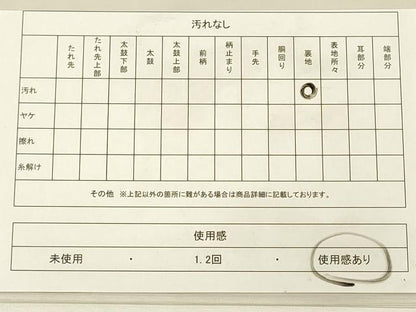 汚れなし
たれ先 たれ先上部 太鼓下部 太鼓 太鼓上部 前柄 柄止まり 手先 胴回り 裏地 表地所々 耳部分 端部分
汚れ ○
ヤケ
擦れ
糸解け
その他 ※上記以外の箇所に難がある場合は商品詳細に記載しております。
使用感
未使用 ・ 1.2回 ・ 使用感あり